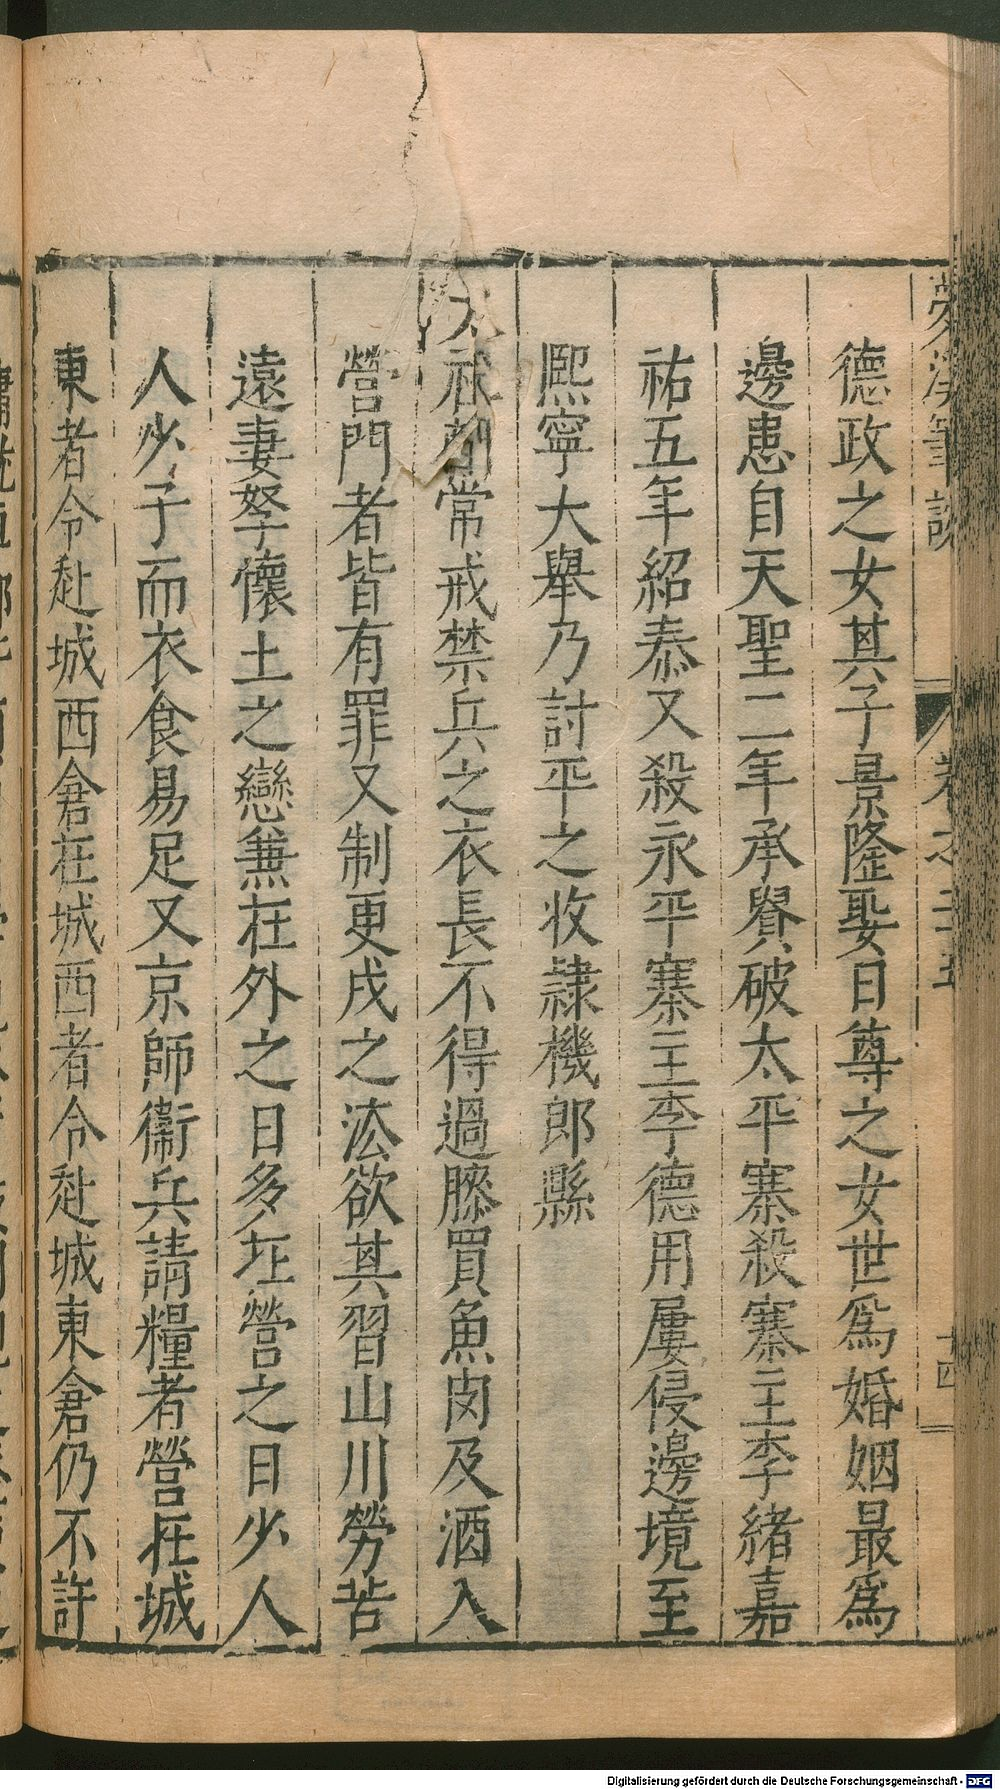 夢溪筆談 卷之二十五 十四
德政之女其子景隆娶日尊之女世爲婚姻最爲
邊患自天聖二年承貴破太平寨殺寨主李緒嘉
祐五年紹泰又殺永平寨主李德用屢侵邊境至
熙寧大舉乃討平之收隷機郎縣
太祖朝常戒禁兵之衣長不得過膝買魚肉及酒入
營門者皆有罪又制更戍之法欲其習山川勞苦
遠妻孥懷土之戀兼在外之日多在營之日少人
人少子而衣食易足又京師衞兵請糧者營在城
東者令赴城西倉在城西者令赴城東倉仍不許
Digitalisierung gefördert durch die Deutsche Forschungsgemeinschaft - DFG